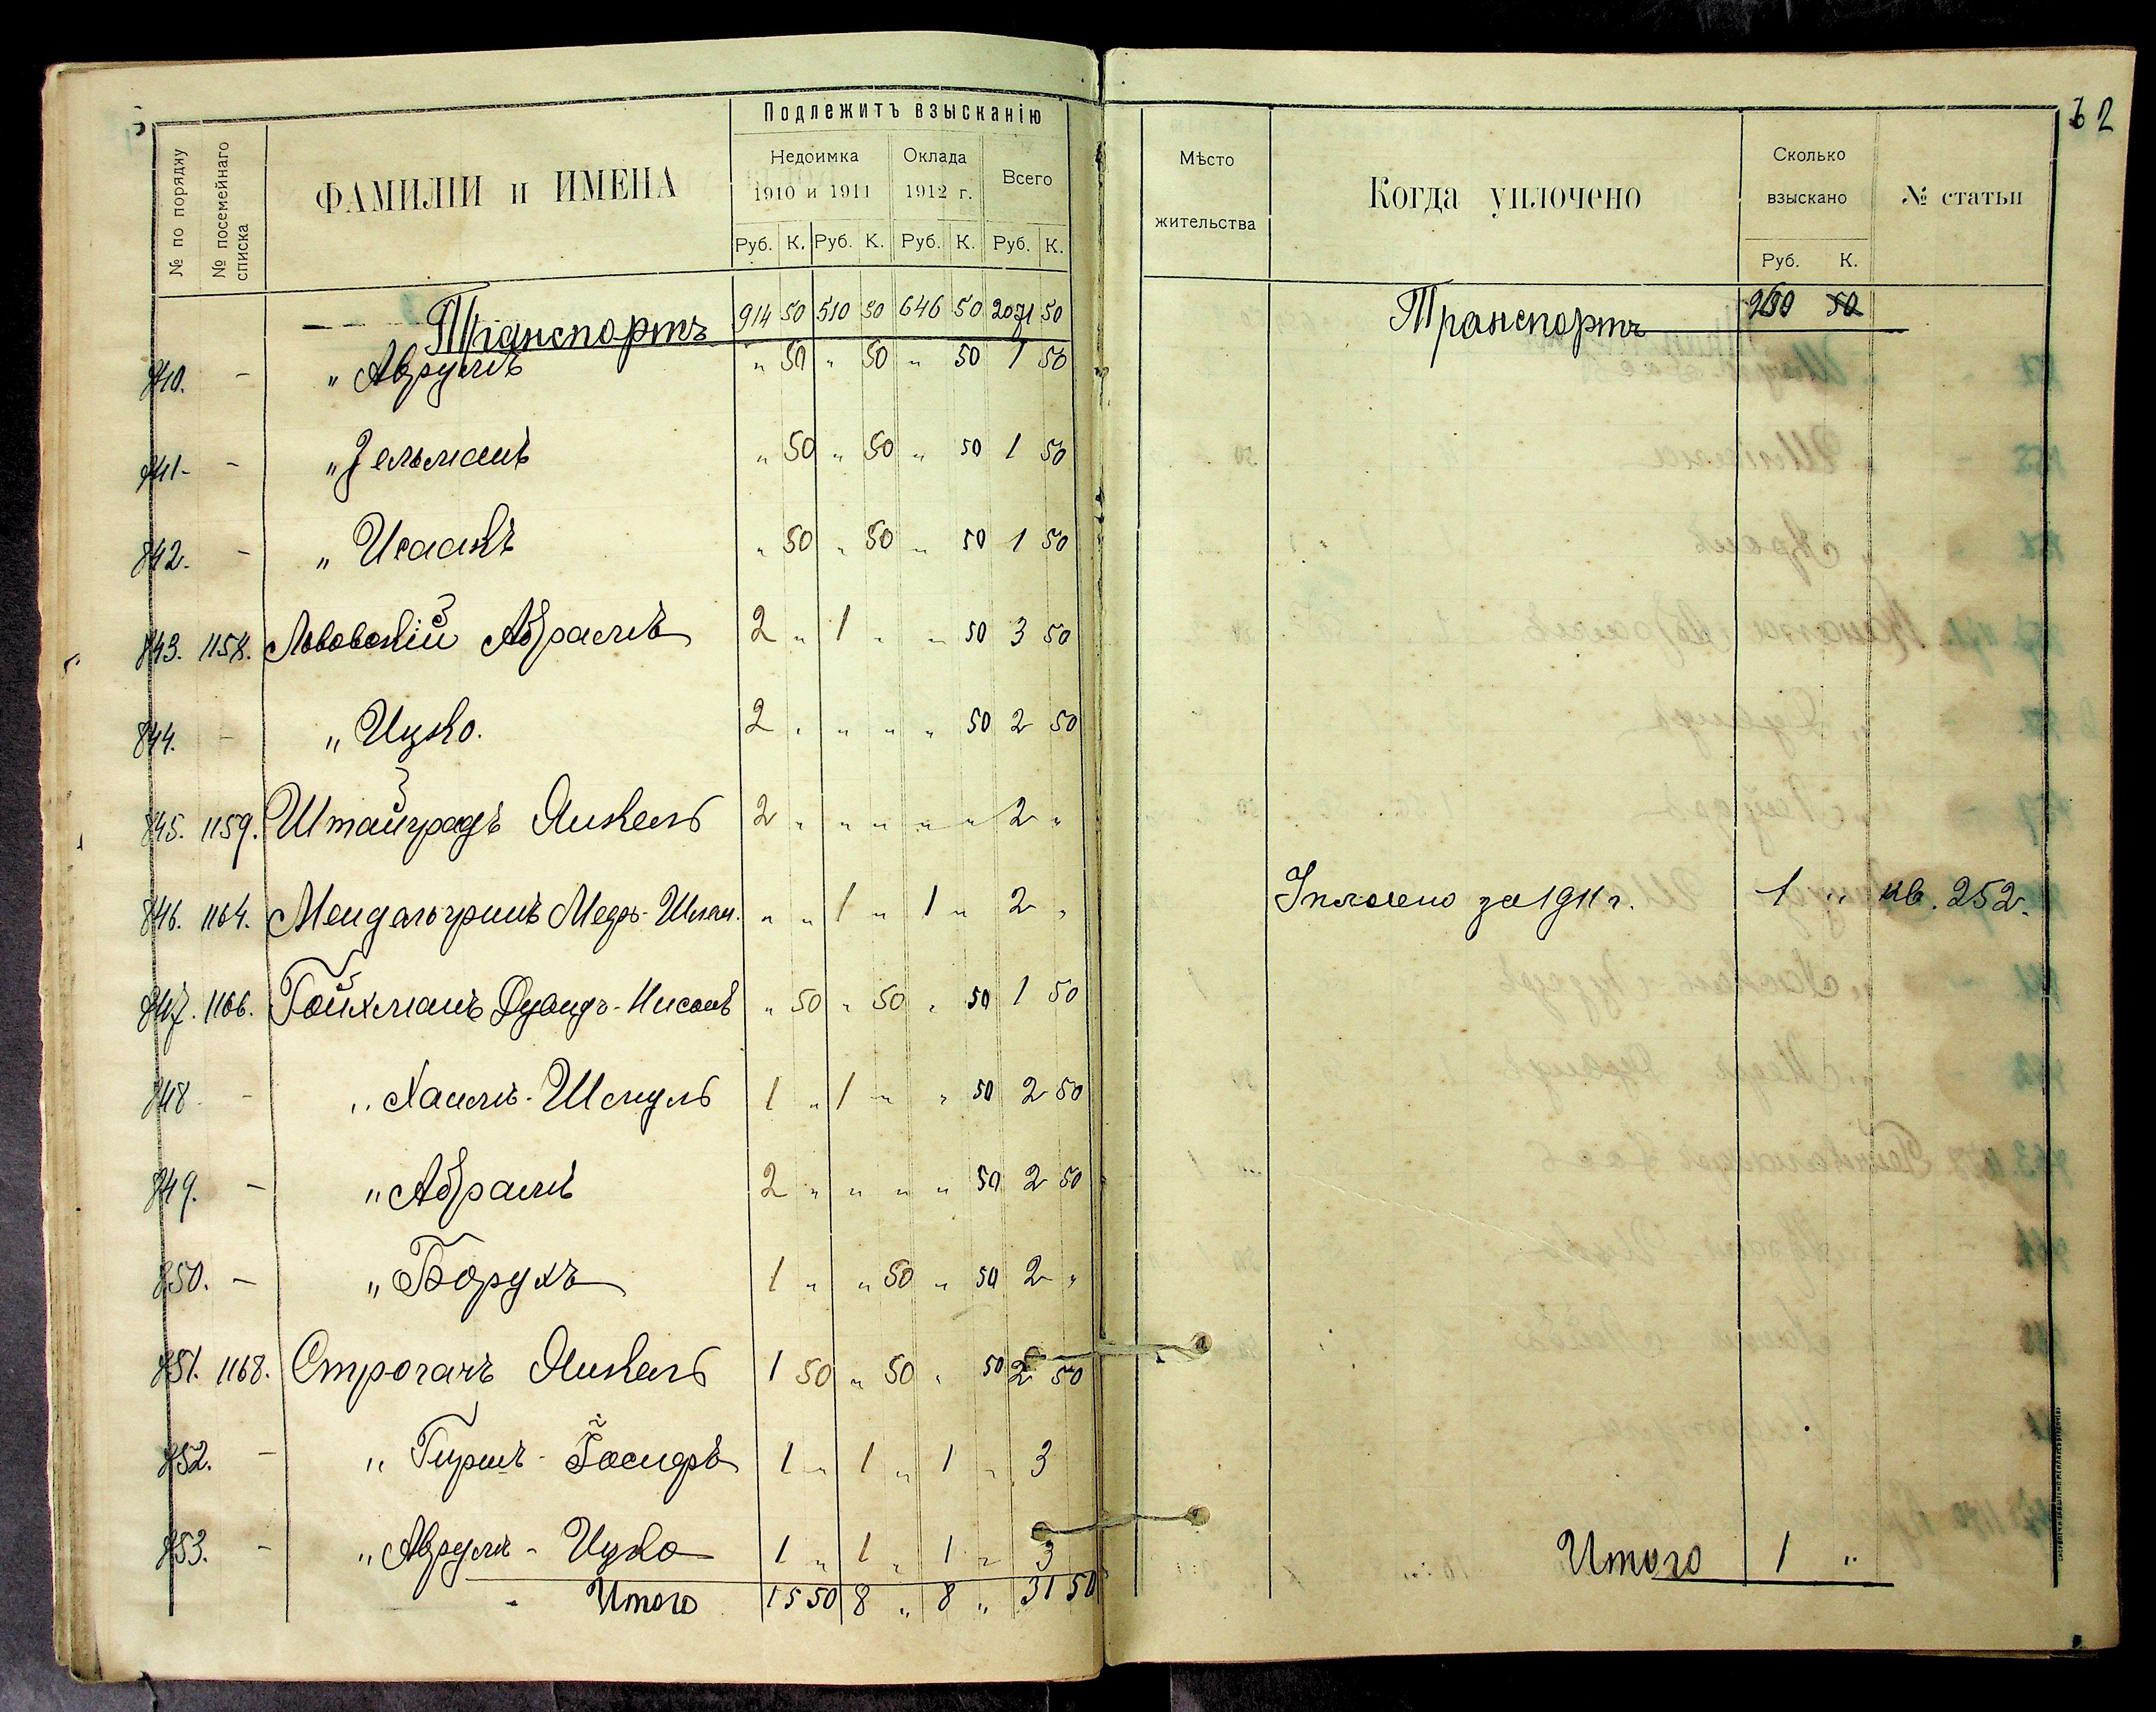 62
Подлежитъ взысканію
№ по порядку
№ посемейнаго списка
ФАМИЛІИ и ИМЕНА
Недоимка 1910 и 1911
Оклада 1912 г.
Всего
Руб. К. Руб. К. Руб. К. Руб. К.
Транспортъ 914 50 510 50 646 50 2071 50
840. - " Аврумъ " 50 " 50 " 50 1 50
841 - - " Зельманъ " 50 " 50 " 50 1 50
842. - " Исаакъ " 50 " 50 " 50 1 50
843. 1158. Львовскій Абрамъ 2 " 1 " " 50 3 50
844. - " Ицко. 2 " " " " 50 2 50
845. 1159. Штайградъ Янкель 2 " " " " " 2 "
846. 1164. Мендельгринъ Медръ-Шлем. " " 1 " 1 " 2 "
847. 1166. Гойхманъ Дувидъ-Нисонъ " 50 " 50 " 50 1 50
848 - " Хаимъ-Шмуль 1 " 1 " " 50 2 50
849. - " Абрамъ 2 " " " " 50 2 50
850. - " Борухъ 1 " " 50 " 50 2 "
851. 1168. Строгачъ Янкель 1 50 " 50 " 50 2 50
852. - " Гиршъ-Іосифъ 1 " 1 " 1 " 3
853. - " Аврумъ-Ицко 1 " 1 " 1 " 3
Итого 15 50 8 " 8 " 31 50
Мѣсто жительства
Когда уплочено
Сколько взыскано
№ статьи
Руб. К.
Транспортъ
Уплочено за 1911 г. 1 " кв. 252.
Итого 1 "